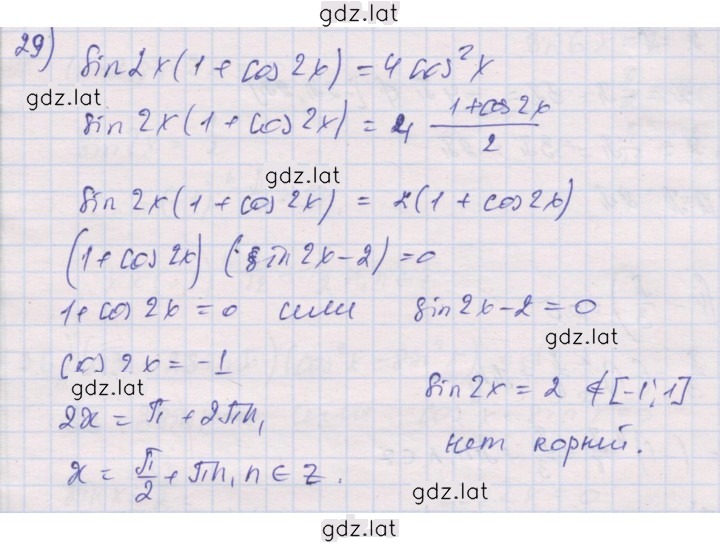 gdz.lat
29) sin2x(1+cos2x)=4cos²x
gdz.lat
sin 2x(1+cos2x) = 4 (1+cos2x)/2
gdz.lat
sin 2x(1+cos2x) = 2(1+cos2x)
(1+cos2x) (sin2x-2)=0
1+cos2x=0 или sin2x-2=0
gdz.lat
cos2x=-1
gdz.lat
sin2x=2 ∉[-1;1]
2x = π +2πn,
нет корний.
x = π/2 + πn, n ∈ Z.
gdz.lat
gdz.lat